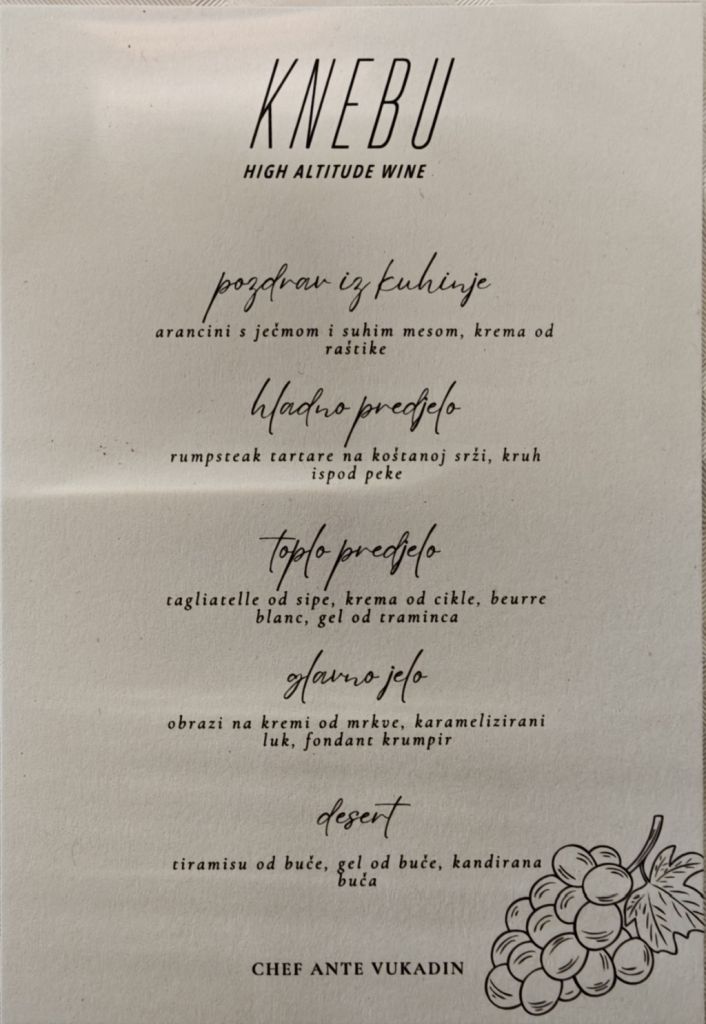 KNEBU
HIGH ALTITUDE WINE
pozdrav iz kuhinje
arancini s ječmom i suhim mesom, krema od
raštike
hladno predjelo
rumpsteak tartare na koštanoj srži, kruh
ispod peke
toplo predjelo
tagliatelle od sipe, krema od cikle, beurre
blanc, gel od traminca
glavno jelo
obrazi na kremi od mrkve, karamelizirani
luk, fondant krumpir
desert
tiramisu od buče, gel od buče, kandirana
buča
CHEF ANTE VUKADIN